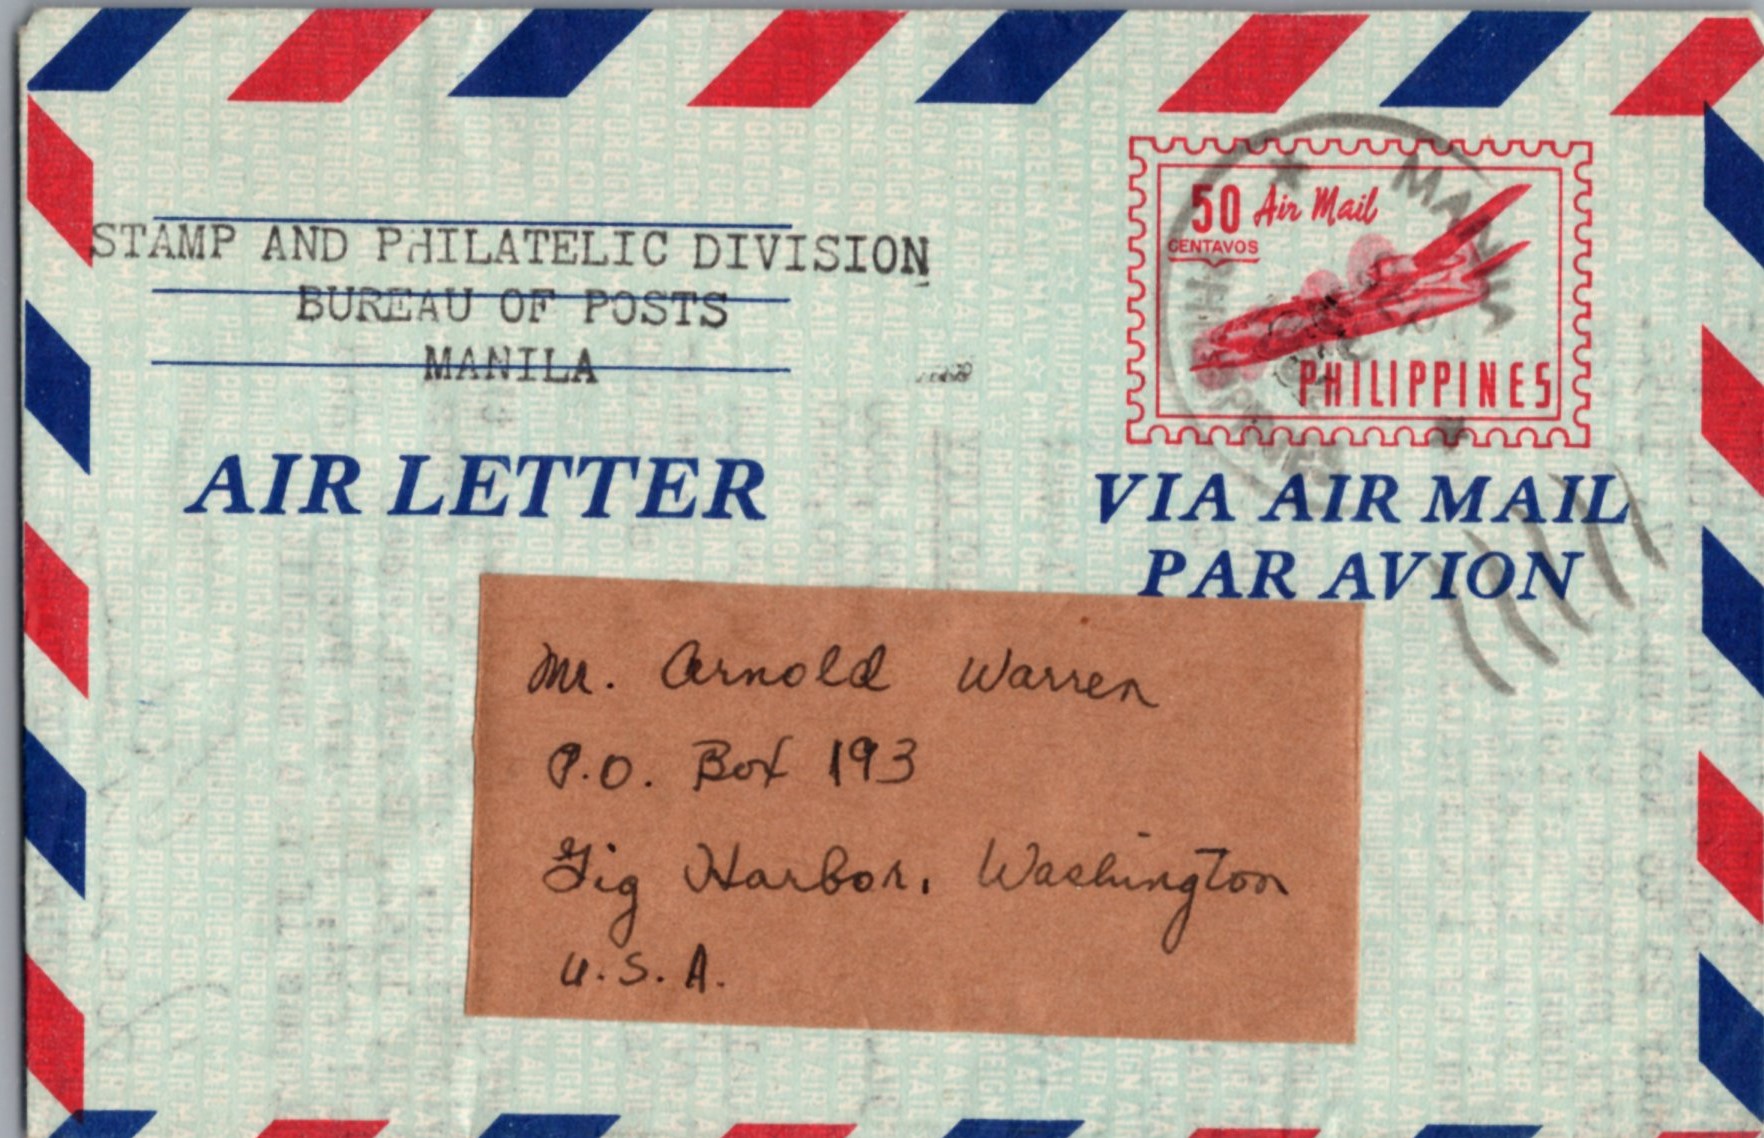 STAMP AND PHILATELIC DIVISION
BUREAU OF POSTS
MANILA
50 Air Mail
CENTAVOS
PHILIPPINES
AIR LETTER
VIA AIR MAIL
PAR AVION
Mr. Arnold Warren
P.O. Box 193
Gig Harbor, Washington
U.S.A.